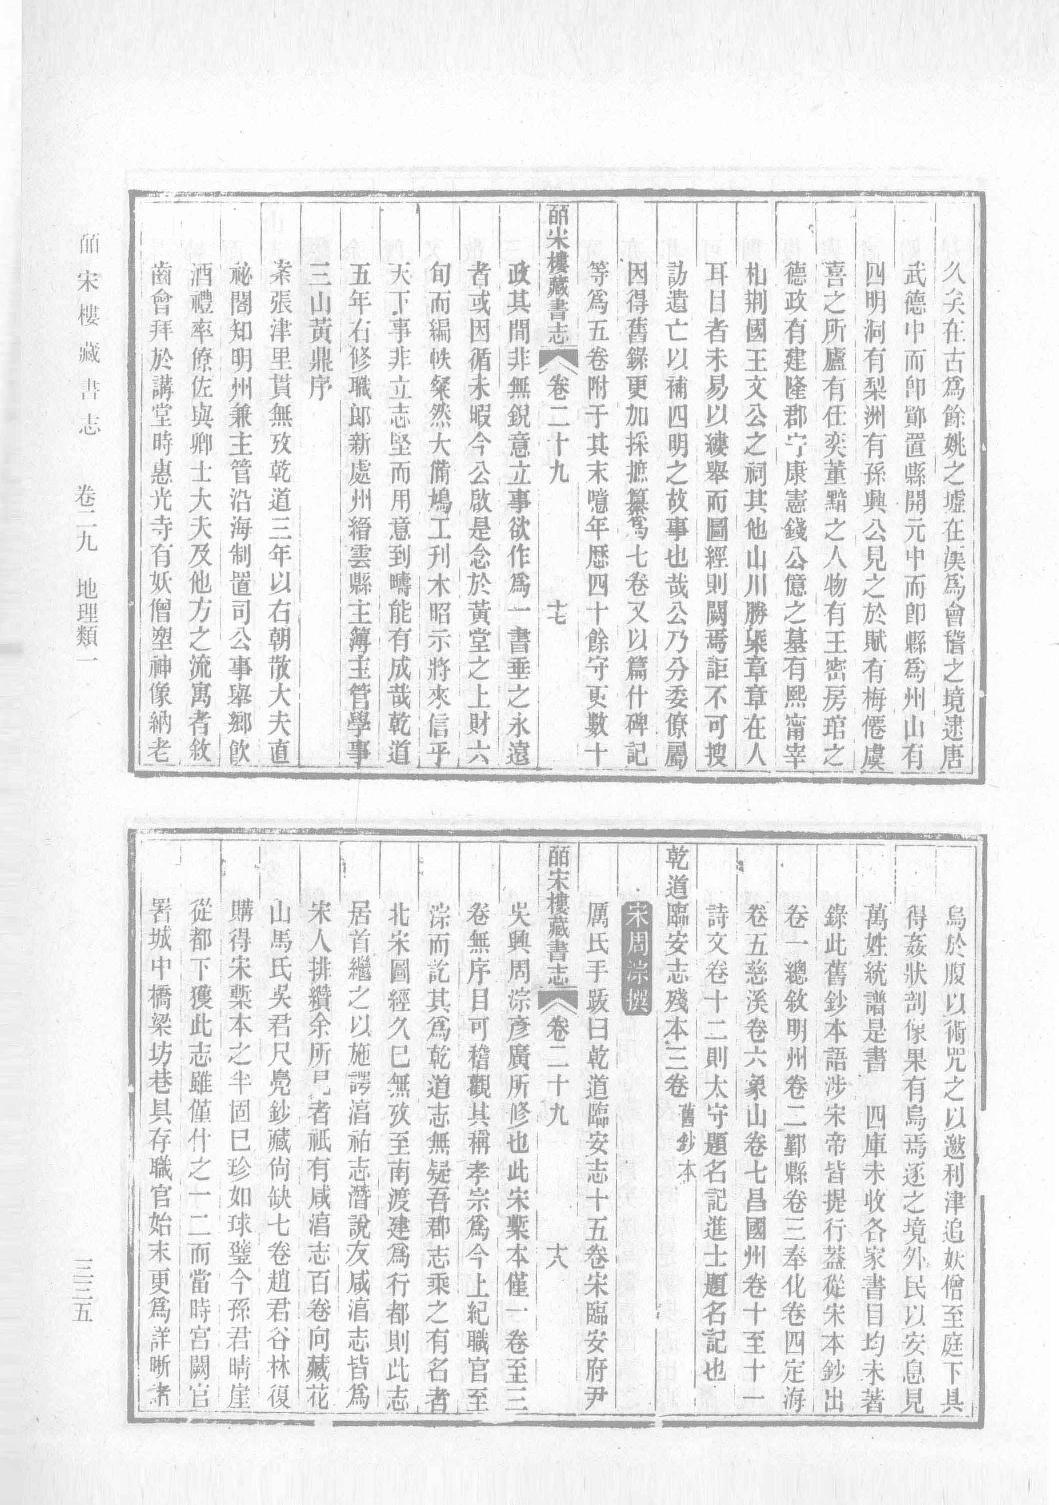 久矣在古爲餘姚之墟在漢爲會稽之境逮唐
武德中而卽鄮置縣開元中而卽縣爲州山有
四明洞有梨洲有孫興公見之於賦有梅僊虞
喜之所廬有任奕董黯之人物有王密房琯之
德政有建隆郡守康憲錢公億之墓有熙甯宰
相荆國王文公之祠其他山川勝槩章章在人
耳目者未易以縷舉而圖經則闕焉詎不可搜
訪遺亡以補四明之故事也哉公乃分委僚屬
因得舊錄更加採摭纂爲七卷又以篇什碑記
等爲五卷附于其末噫年歴四十餘守更數十
皕宋樓藏書志 卷二十九 十七
政其間非無銳意立事欲作爲一書垂之永遠
者或因循未暇今公啟是念於黃堂之上財六
旬而編帙粲然大備鳩工刊木昭示將來信乎
天下事非立志堅而用意到疇能有成哉乾道
五年右修職郎新處州縉雲縣主簿主管學事
三山黃鼎序
案張津里貫無攷乾道三年以右朝散大夫直
祕閣知明州兼主管沿海制置司公事舉鄉飮
酒禮率僚佐與鄉士大夫及他方之流寓者敘
齒會拜於講堂時惠光寺有妖僧塑神像納老
烏於腹以術咒之以邀利津追妖僧至庭下具
得姦狀剖像果有烏焉逐之境外民以安息見
萬姓統譜是書 四庫未收各家書目均未著
錄此舊鈔本語涉宋帝皆提行蓋從宋本鈔出
卷一總敘明州卷二鄞縣卷三奉化卷四定海
卷五慈溪卷六象山卷七昌國州卷十至十一
詩文卷十二則太守題名記進士題名記也
乾道臨安志殘本三卷 舊鈔本
宋周淙撰
厲氏手跋曰乾道臨安志十五卷宋臨安府尹
皕宋樓藏書志 卷二十九 十八
吳興周淙彥廣所修也此宋槧本僅一卷至三
卷無序目可稽觀其稱孝宗爲今上紀職官至
淙而訖其爲乾道志無疑吾郡志乘之有名者
北宋圖經久已無攷至南渡建爲行都則此志
居首繼之以施諤湻祐志潛說友咸湻志皆爲
宋人排纘余所見者祇有咸湻志百卷向藏花
山馬氏吳君尺鳧鈔藏尙缺七卷趙君谷林復
購得宋槧本之半固已珍如球璧今孫君晴崖
從都下獲此志雖僅什之一二而當時宮闕官
署城中橋梁坊巷具存職官始末更爲詳晰諸
皕宋樓藏書志 卷二九 地理類一
三三五